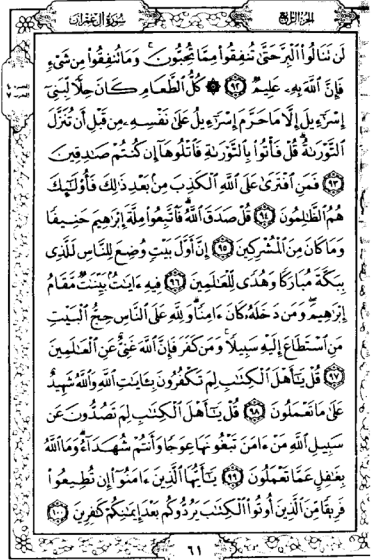 الجزء الرابع
سورة آل عمران
لَن نَنَالُوا۟ ٱلْبِرَّ حَتَّىٰ تُنفِقُوا۟ مِمَّا تُحِبُّونَ ۚ وَمَا تُنفِقُوا۟ مِن شَىْءٍ
فَإِنَّ ٱللَّهَ بِهِۦ عَلِيمٌ ﴿٩٢﴾ ۞ كُلُّ ٱلطَّعَامِ كَانَ حِلًّا لِّبَنِىٓ
إِسْرَٰٓءِيلَ إِلَّا مَا حَرَّمَ إِسْرَٰٓءِيلُ عَلَىٰ نَفْسِهِۦ مِن قَبْلِ أَن تُنَزَّلَ
ٱلتَّوْرَىٰةُ ۗ قُلْ فَأْتُوا۟ بِٱلتَّوْرَىٰةِ فَٱتْلُوهَآ إِن كُنتُمْ صَٰدِقِينَ
﴿٩٣﴾ فَمَنِ ٱفْتَرَىٰ عَلَى ٱللَّهِ ٱلْكَذِبَ مِنۢ بَعْدِ ذَٰلِكَ فَأُو۟لَٰٓئِكَ
هُمُ ٱلظَّٰلِمُونَ ﴿٩٤﴾ قُلْ صَدَقَ ٱللَّهُ ۗ فَٱتَّبِعُوا۟ مِلَّةَ إِبْرَٰهِيمَ حَنِيفًا
وَمَا كَانَ مِنَ ٱلْمُشْرِكِينَ ﴿٩٥﴾ إِنَّ أَوَّلَ بَيْتٍ وُضِعَ لِلنَّاسِ لَلَّذِى
بِبَكَّةَ مُبَارَكًا وَهُدًى لِّلْعَٰلَمِينَ ﴿٩٦﴾ فِيهِ ءَايَٰتٌۢ بَيِّنَٰتٌ مَّقَامُ
إِبْرَٰهِيمَ ۖ وَمَن دَخَلَهُۥ كَانَ ءَامِنًا ۗ وَلِلَّهِ عَلَى ٱلنَّاسِ حِجُّ ٱلْبَيْتِ
مَنِ ٱسْتَطَاعَ إِلَيْهِ سَبِيلًا ۚ وَمَن كَفَرَ فَإِنَّ ٱللَّهَ غَنِىٌّ عَنِ ٱلْعَٰلَمِينَ
﴿٩٧﴾ قُلْ يَٰٓأَهْلَ ٱلْكِتَٰبِ لِمَ تَكْفُرُونَ بِـَٔايَٰتِ ٱللَّهِ وَٱللَّهُ شَهِيدٌ
عَلَىٰ مَا تَعْمَلُونَ ﴿٩٨﴾ قُلْ يَٰٓأَهْلَ ٱلْكِتَٰبِ لِمَ تَصُدُّونَ عَن
سَبِيلِ ٱللَّهِ مَنْ ءَامَنَ تَبْغُونَهَا عِوَجًا وَأَنتُمْ شُهَدَآءُ ۗ وَمَا ٱللَّهُ
بِغَٰفِلٍ عَمَّا تَعْمَلُونَ ﴿٩٩﴾ يَٰٓأَيُّهَا ٱلَّذِينَ ءَامَنُوٓا۟ إِن تُطِيعُوا۟
فَرِيقًا مِّنَ ٱلَّذِينَ أُوتُوا۟ ٱلْكِتَٰبَ يَرُدُّوكُم بَعْدَ إِيمَٰنِكُمْ كَٰفِرِينَ ﴿١٠٠﴾
٦١